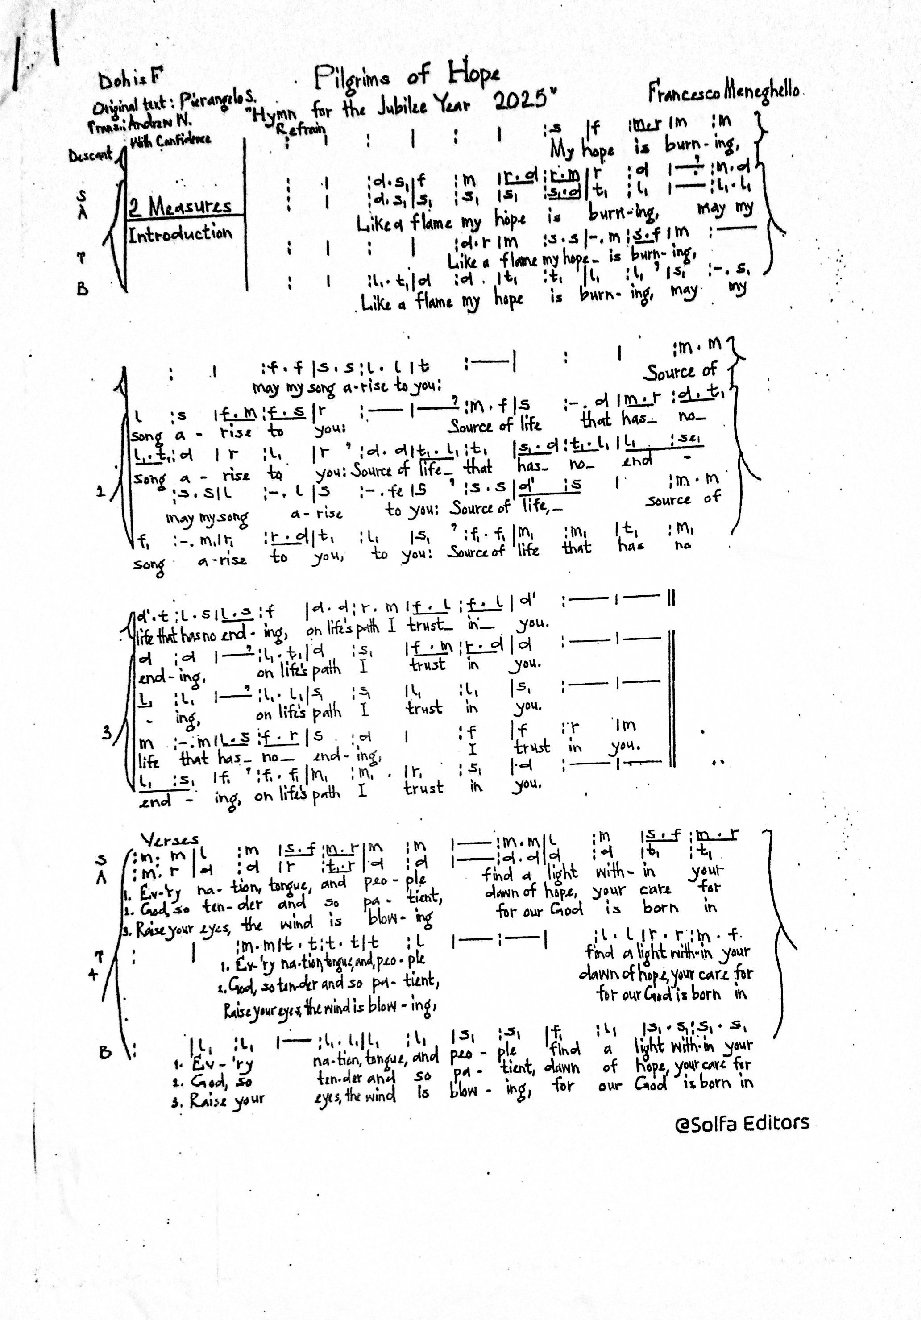 Doh is F
Pilgrims of Hope
Original text: Pierangelo S.
Trans: Andrew W.
"Hymn for the Jubilee Year 2025"
Francesco Meneghello.
With Confidence
Refrain
Descant
: | : | : | :s |f :m.r |m :m
My hope is burn-ing,
S
: | :d.s,|f :m |r.d :r.m |r :d |— :m.d
A
: | :d.s,|s, :s, |s, :s,.d |t, :l, |— :l,.l,
2 Measures
Introduction
Like a flame my hope is burn-ing, may my
T
: | : | :d.r|m :s.s|-.m |s.f |m :—
Like a flame my hope_ is burn-ing,
B
: | :l,.t,|d :d |t, :t, |l, :l, ' |s, :-.s,
Like a flame my hope is burn-ing, may my
: | :f.f |s.s :l.l |t :—| : | :m.m
may my song a-rise to you: Source of
l :s |f.m :f.s |r :— |—' :m.f |s :-.d |m.r :d.t,
song a - rise to you: Source of life that has_ no_
l,.t, :d |r :l, |r ' :d.d |t,.l, :t, |s,.d :t,.l, |l, :se,
song a - rise to you: Source of life_ that has_ no_ end -
1
:s.s|l :-.l |s :-.fe |s ' :s.s |d' :s | :m.m
may my song a-rise to you: Source of life,_ source of
f, :-.m,|r, :r.d|t, :l, |s, ' :f,.f, |m, :m, |t, :m,
song a-rise to you, to you: Source of life that has no
d'.t :l.s |l.s :f |d.d :r.m |f.l :f.l |d' :— |— :— ||
life that has no end-ing, on life's path I trust_ in_ you.
d :d |—' :l,.t,|d :s, |f.m :r.d |d :— |— :—
end-ing, on life's path I trust in you.
l, :l, |—' :l,.l,|s, :s, |l, :l, |s, :— |— :—
- ing, on life's path I trust in you.
3
m :-.m |l.s :f.r |s :d | :f |f :r |m
life that has_ no_ end-ing, I trust in you.
l, :s, |f, ' :f,.f, |m, :m, |r, :s, |d :— |— :—
end - ing, on life's path I trust in you.
Verses
S
:m.m |l :m |s.f :m.r |m :m |— :m.m |l :m |s.f :m.r
A
:m.r |d :d |r :t,.r |d :d |— :d.d |d :d |t, :t,
1. Ev-'ry na-tion, tongue, and peo-ple find a light with-in your
2. God, so ten-der and so pa-tient, dawn of hope, your care for
3. Raise your eyes, the wind is blow-ing for our God is born in
T
: | :m.m|t.t :t.t |t :l |— :— | :l.l |r.r :m.f
4
1. Ev'ry nation, tongue, and, peo-ple find a light with-in your
2. God, so tender and so pa-tient, dawn of hope, your care for
Raise your eyes, the wind is blow-ing, for our God is born in
B
: |l, :l, |— :l,.l,|l, :l, |s, :s, |f, :l, |s,.s, :s,.s,
1. Ev-'ry na-tion, tongue, and peo-ple find a light with-in your
2. God, so ten-der and so pa-tient, dawn of hope, your care for
3. Raise your eyes, the wind is blow-ing, for our God is born in
@Solfa Editors